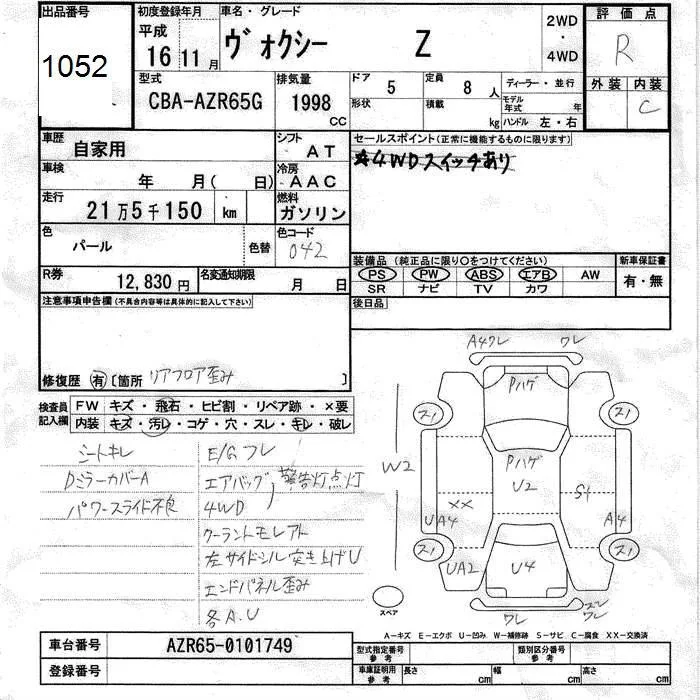 出品番号
1052
初度登録年月
平成 16 11月
車名・グレード
ヴォクシー Z
2WD
・
4WD
評価点
R
外装 内装
C
型式
CBA-AZR65G
排気量
1998 CC
ドア 5
定員 8人
形状
積載 kg
ディーラー・並行
モデル年式 年
ハンドル 左・右
車歴
自家用
シフト
AT
車検
年 月( 日)
冷房
AAC
走行
21万5千150 km
燃料
ガソリン
色
パール
色替
色コード
042
R券
12,830円
名変通知期限
月 日
セールスポイント(正常に機能するものに限ります)
★4WDスイッチあり
装備品(純正品に限り○をつけてください)
新車保証書
PS PW ABS エアB AW
SR ナビ TV カワ
有・無
後日品
注意事項申告欄(不具合内容等は具体的に記入して下さい)
修復歴 有 〔箇所 リアフロア歪み 〕
検査員記入欄
FW キズ・飛石・ヒビ割・リペア跡・×要
内装 キズ・汚レ・コゲ・穴・スレ・キレ・破レ
シートキレ
DミラーカバーA
パワースライド不良
E/Gフレ
エアバッグ
4WD
警告灯点灯
クーラントモレアト
左サイドシル突き上げU
エンドパネル歪み
各A.U
A4ワレ ワレ
Pハゲ
スリ スリ
Pハゲ
U2
W2
XX
S1
UA4
A4
スリ スリ
UA2
U4
スペア
ワレ
ズレ
ワレ
A-キズ E-エクボ U-凹み W-補修跡 S-サビ C-腐食 XX-交換済
車台番号
AZR65-0101749
登録番号
型式指定番号
参考
類別区分番号
参考
車庫証明用
参考
長さ cm
幅 cm
高さ cm